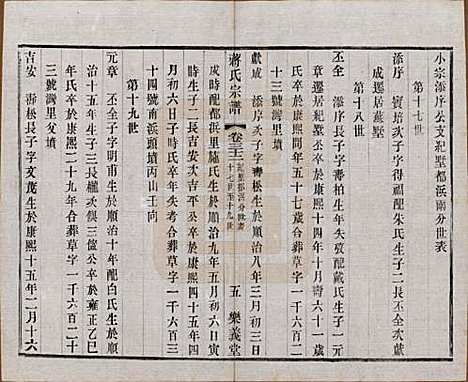 小宗添序公支紀墅都浜南分世表
第十七世
添序 賓培次子字得福配朱氏生子二長丕全次獻
成遷居蘇墅
第十八世
丕全 添序長子字壽柏生年失攷配戴氏生子一元
章遷居紀墅生於康熙十四年十月壽六十一歲
氏卒於康熙間年五十七歲合葬草字一千六百二
十三號灣里墳
獻成 添序次子字壽松生於順治八年三月初三日
戌時配都浜里施氏生於順治九年五月初六日寅
時生子二長吉安次吉平公卒於康熙四十五年四
月初六日子時氏卒年失考合葬草字一千六百二
十四號南浜頭墳丙山壬向
第十九世
元章 丕全子字明甫生於順治十年配白氏生於順
治十五年生子三長櫳次三億公卒於雍正乙巳
年氏卒於康熙二十九年合葬草字一千六百二十
三號灣里父墳
吉安 壽松長子字文茂生於康熙十五年二月十六
蔣氏宗譜
卷三十三
五 樂義堂